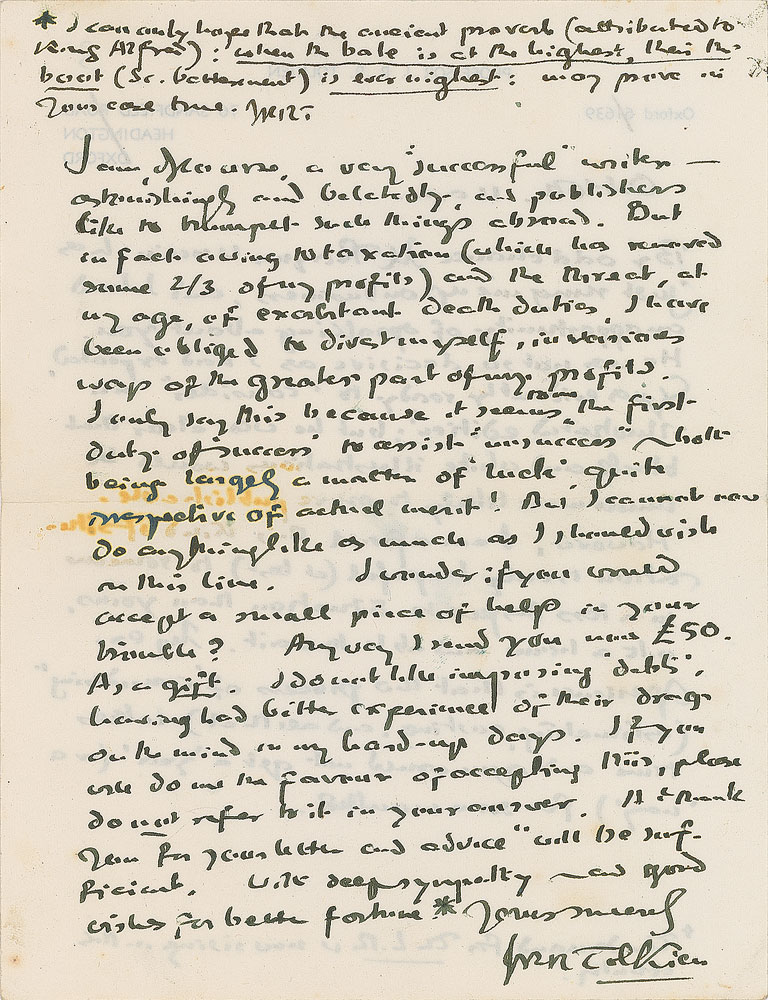 * I can only hope that the ancient proverb (attributed to
King Alfred): when the bale is at the highest, then the
boot (sc. betterment) is ever nighest: may prove in
your case true. JRRT.
I am, of course, a very 'successful' writer —
astonishingly and belatedly, and publishers
like to trumpet such things abroad. But
in fact owing to taxation (which has removed
some 2/3 of my profits) and the threat, at
my age, of exorbitant death duties, I have
been obliged to divest myself, in various
ways of the greater part of my profits.
I only say this because it seems to me the first
duty of 'success' to assist 'unsuccess' – both
being largely a matter of 'luck', quite
irrespective of actual merit! But I cannot now
do anything like as much as I should wish
in this line. I wonder if you would
accept a small piece of help in your
trouble? Anyway I send you now £50.
As a gift. I do not like imposing 'debts',
having had bitter experience of their drag
on the mind in my hard-up days. If you
will do me the favour of accepting this, please
do not refer to it in your answer. A "thank
you for your letter and advice" will be suf-
ficient. With deep sympathy – and good
wishes for better fortune * Yours sincerely
JRR Tolkien